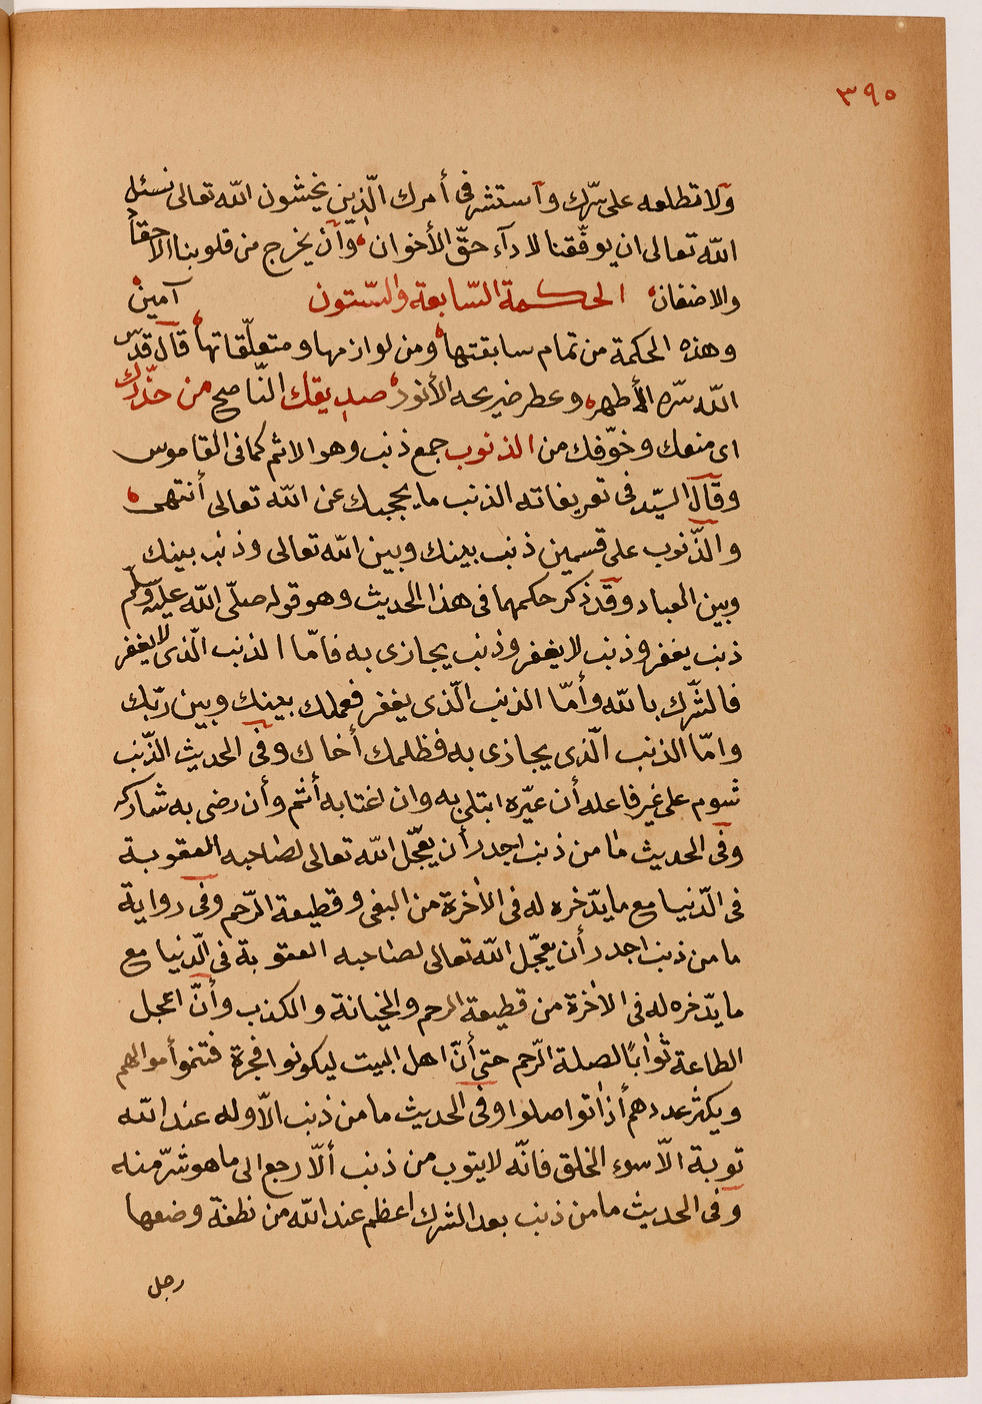 ٣٩٥
ولا تطلعه على سرّك وآستشر فى أمرك الّذين يخشون الله تعالى نسئل
الله تعالى ان يوفّقنا لادآء حقّ الأخوان، وآن يخرج من قلوبنا الاحقاد
والاضغان، الحكمة السّابعة والستون آمين
وهذه الحكمة من تمام سابقتها ومن لوازمها ومتعلّقاتها قال قدّس
الله سّره الأطهره وعطر ضريحه الأنور صديقك النّاصح من حذّرك
اى منعك وخوّفك من الذنوب جمع ذنب وهو الاثم كما فى القاموس
وقال السيّد فى تعريفاته الذنب ما يحجبك عن الله تعالى أنتهى
والذّنوب على قسمين ذنب بينك وبين الله تعالى وذنب بينك
وبين العباد وقد ذكر حكمهما فى هذا الحديث وهو قوله صلّى الله عليه وسلّم
ذنب يغفر وذنب لا يغفر وذنب يجازى به فامّا الذنب الّذى لا يغفر
فالشّرك بالله وأمّا الذنب الّذى يغفر فعملك بينك وبين ربّك
وامّا الذنب الّذى يجازى به فظلمك أخاك وفى الحديث الذّنب
شوم على غير فاعله أن عيّره ابتلى به وان اغتابه أثم وأن رضى به شاركه
وفى الحديث مٰا من ذنب اجدر أن يعجّل الله تعالى لصٰاحبه العقوبة
فى الدّنيا مع ما يدّخره له فى الاٰخرة من البغى وقطيعة الرّحم وفى رواية
ما من ذنب اجدر أن يعجّل الله تعالى لصٰاحبه العقوبة فى الدّنيا مع
ما يدّخره له فى الاٰخرة من قطيعة الرحم والخيانة والكذب وأنّ اعجل
الطاعة ثوٰابًا لصلة الرّحم حتى أنّ اهل البيت ليكونوا فجرة فتنموأ موالهم
ويكثر عددهم أذا تواصلوا وفى الحديث ما من ذنب الاّ وله عند الله
توبة الاّ سوء الخلق فانّه لا يتوب من ذنب ألاّ رجع الى ما هو شرّ منه
وفى الحديث ما من ذنب بعد الشرك اعظم عند الله من نطفة وضعها
رجل